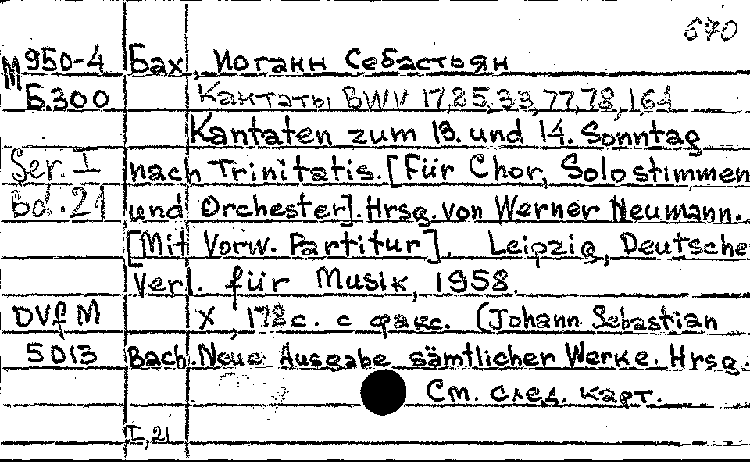 670
М 950-4 Бах, Иоганн Себастьян
Б300 Кантаты BWV 17,25,33,77,78,164
Kantaten zum 13. und 14. Sonntag
Ser. I nach Trinitatis. [Für Chor, Solostimmen
Bd. 21 und Orchester]. Hrsg. von Werner Neumann.
[Mit Vorw. Partitur]. Leipzig, Deutsche
Verl. für Musik, 1958.
DVfM X, 178 с. с факс. (Johann Sebastian
5013 Bach. Neue Ausgabe sämtlicher Werke. Hrsg.
См. след. карт.
I, 21